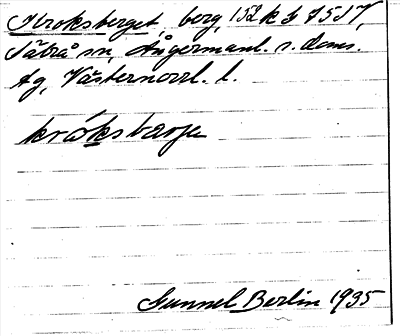 Kroksberget, berg, 152 k
Sätrå sn, Ångermanl. s. doms.
Ag, Västernorrl. l.
króksbarje
Gunnel Berlin 1935